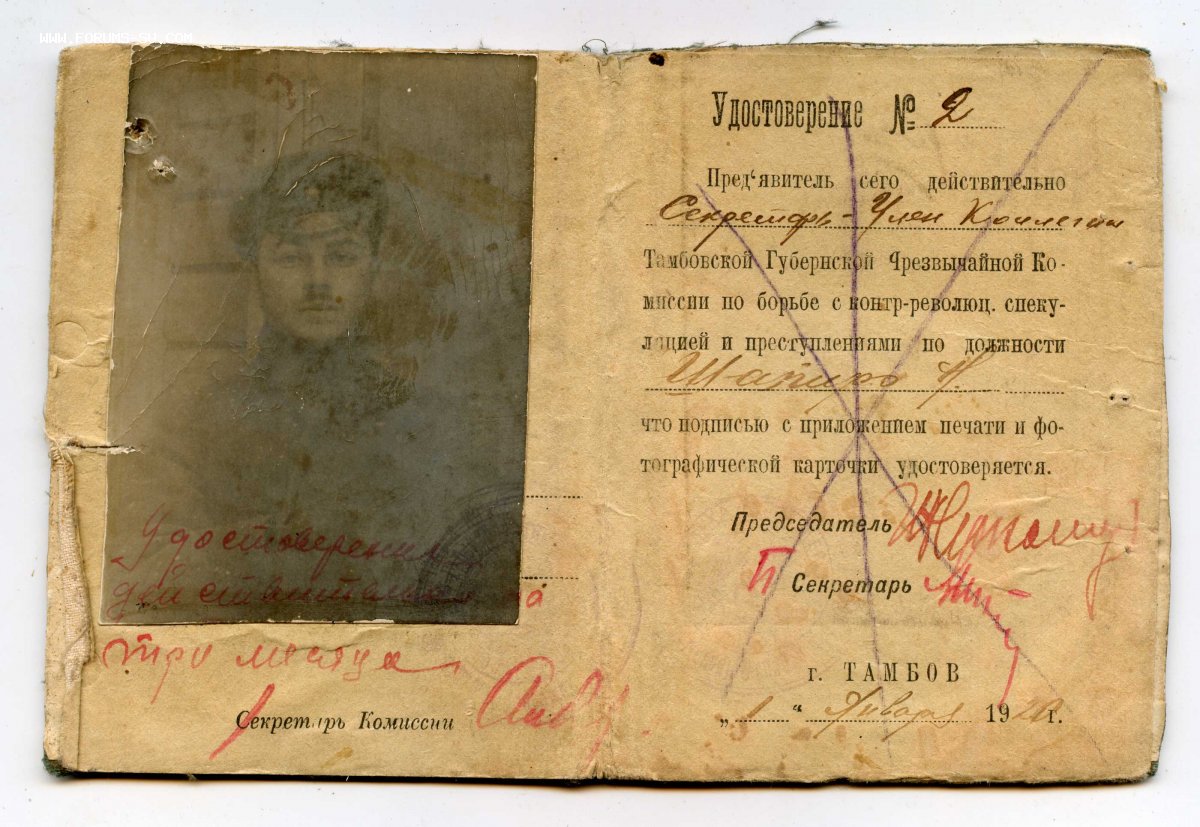 WWW.FORUMS-SU.COM
Удостоверение
действительно на
три месяца
Секретарь Комиссии
Удостоверение № 2
Пред‘явитель сего действительно
Секретарь-Член Коллегии
Тамбовской Губернской Чрезвычайной Ко-
миссии по борьбе с контр-революц. спеку-
ляцией и преступлениями по должности
Шапиро
что подписью с приложением печати и фо-
тографической карточки удостоверяется.
Председатель
П Секретарь
г. ТАМБОВ
„ 1 “ Января 1920 г.